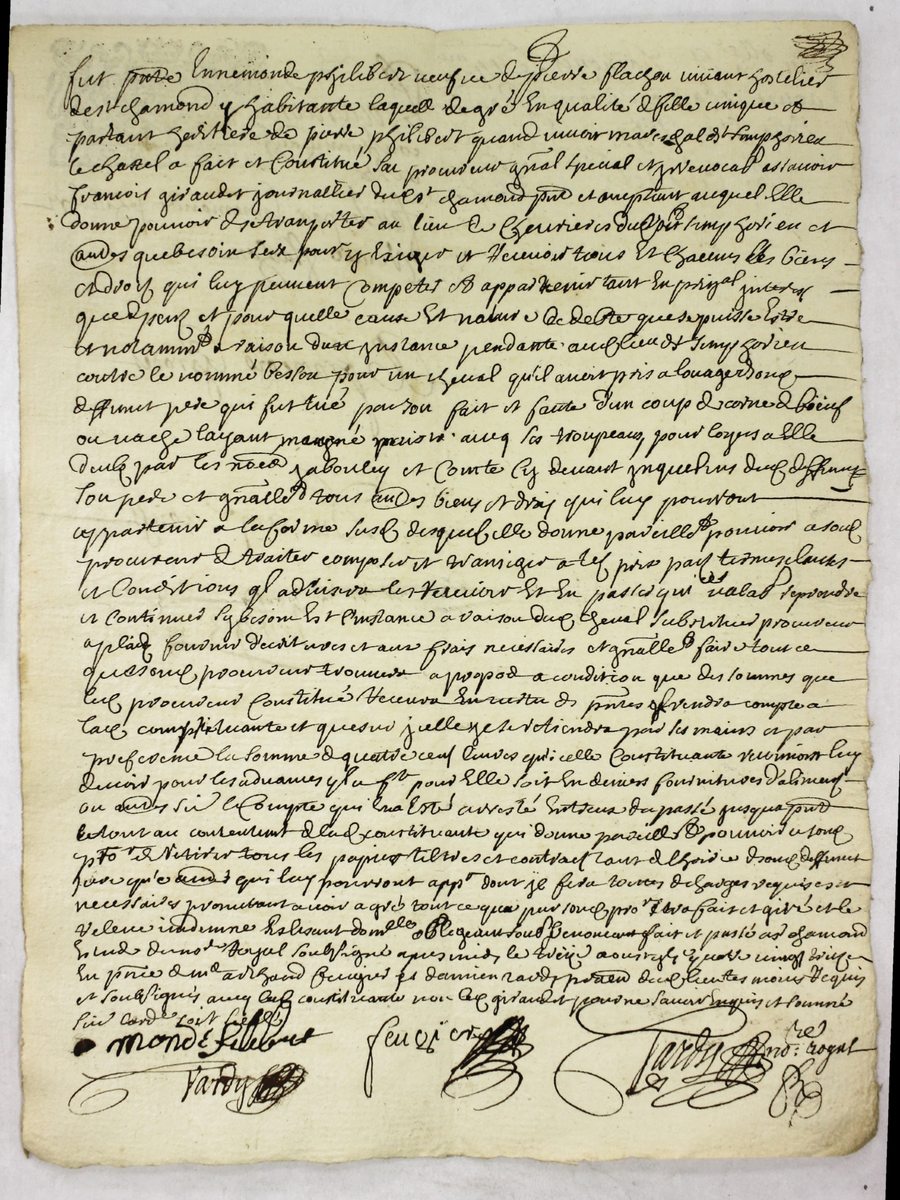 fut pnte Ennemonde philibert veufve de pierre flachon vivant hostelier
de st chamond y habitante laquelle de gré En qualité de fille unique et
partant heritiere de pierre philibert quand vivoit mareschal de st simphorien
le chastel a fait et Constitué son procureur gnal special et irrevocab assavoir
françois giraudet journallier dud st chamond pnt et auquel Elle
donne pouvoir de se transporter au lieu de dud st simphorien et
aultres que besoin sera pour y Exiger et Recevoir tous Et chacuns les biens
et droits qui luy peuvent Competer et appartenir tant En prinpal interest
que despens et pour quelle cause Et nature de debte que se puisse Estre
et notamment a raison dune jnstance pendante aud lieu de st simphorien
contre le nommé besson pour un cheval qu'il avoit pris a louage dud
deffunct pere qui fut tué par son fait et faute d'un coup de corne de boeuf
ou vache layant mené avec ses troupeaux, pour loyers a Elle
deubs par les nommés jabouley et Comte cy devant jnquelins dud deffunct
son pere et gnallemt tous aultres biens et droits qui luy pourront
appartenir a la forme susd desquels elle donne pareillemt pouvoir a sond
procureur de traiter composer et transiger a tel prix pact termes clauses
et Conditions ql advisera les Recevoir Et En passer quittances valab reprendre
et continuer sy besoin Est l'instance a raison dud cheval substituer procureur
a plaid fournir d'ecritures et aux frais necessaires et gnallemt faire tout ce
que sond procureur trouvera a propos a condition que des sommes que
led procureur Constitué recevra En vertu des pntes il rendra compte a
lad constituante et que sur jcelles il se retiendra par ses mains et par
preference la somme de quatre cent livres qu'icelle Constituante reconnoit luy
devoir pour les advances ql a fait pour Elle soit En deniers fournitures d'aliments
ou aultres sur le Compte qui En a Esté arresté Entreux du passé jusqua pnt
Le tout au contentement de lad constituante qui donne pareillemt pouvoir a sond
procr de Retirer tous les papiers tiltres et contracts tant de l'hoirie de sond deffunct
pere qu'aultres qui luy pourront appr dont jl fera toutes descharges requises et
necessaires promettant avoir a gré tout ce que par sond procr sera fait et geré et le
relever indemne Eslisant domille obligeant soub Renoncant fait et passé a st chamond
Estude du nore Royal soubsigné apres midy le treize aoust gbjc quatre vingt treize
En pnce de mr achand feugier et damien tardy praticien dud lieu tesmoins Requis
et soubsignés avec lad constituante non led giraudet pour ne scavoir Enquis et sommé
monde fillibert
feugier
Tardy
Tardy nore royal